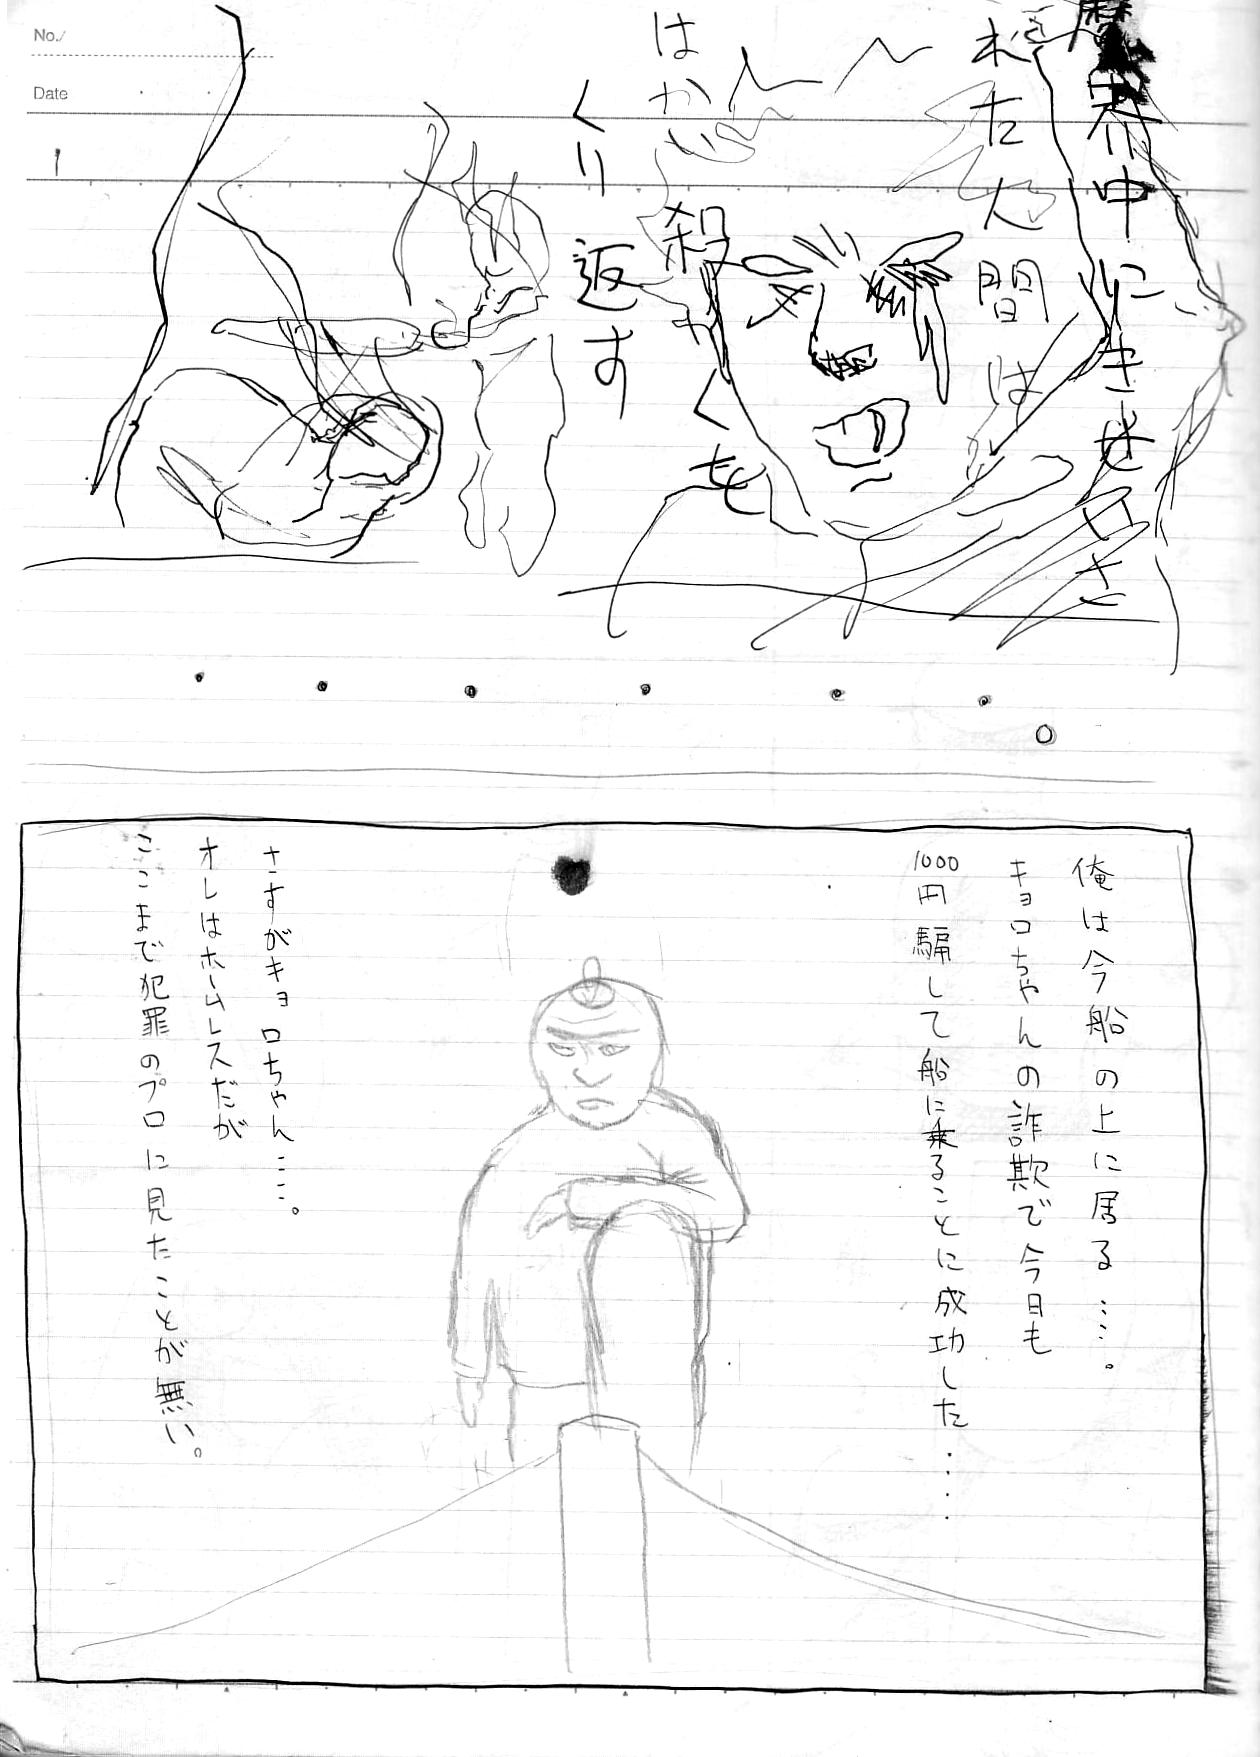 No.
Date
1
魔界中にきせいさ
れた人間は
はかい殺りくを
くり返す
俺は今船の上に居る……。
キョロちゃんの詐欺で今日も
1000円騙して船に乗ることに成功した……
さすがキョロちゃん……。
オレはホームレスだが
ここまで犯罪のプロに見たことが無い。